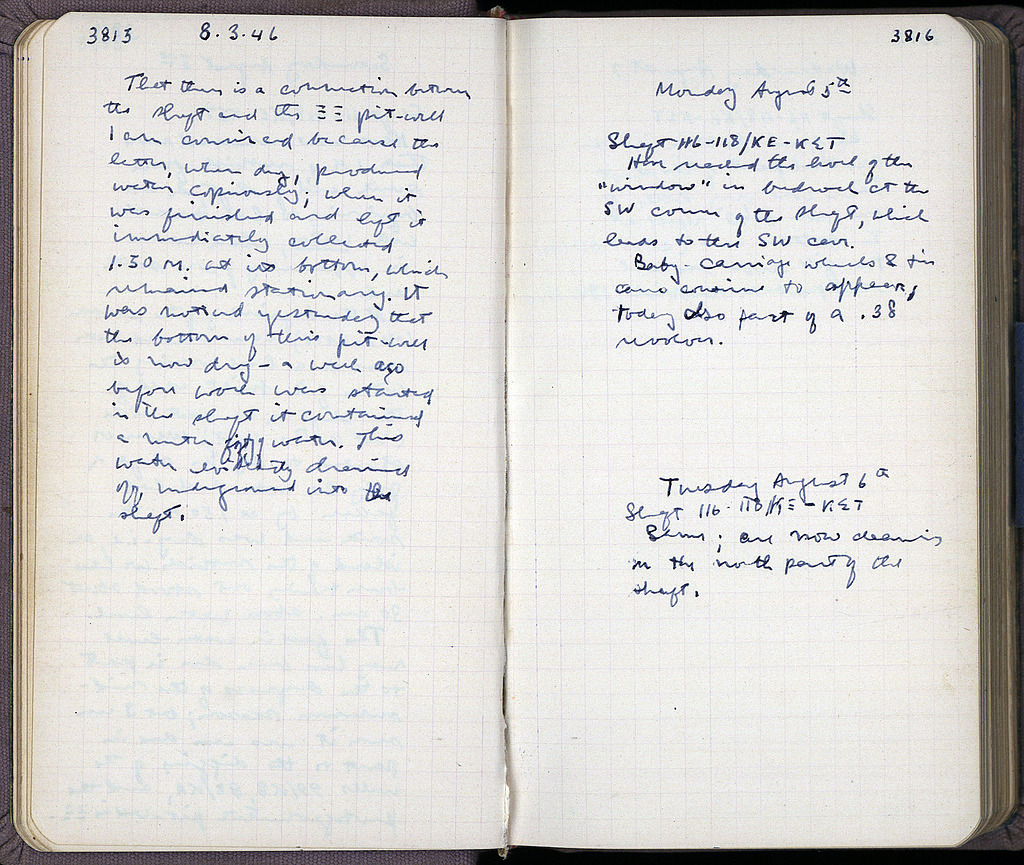 3815 8.3.46
That there is a connection between
the shaft and the ΞΞ pit-well
I am convinced because the
latter, when dug, produced
water copiously; when it
was finished and left it
immediately collected
1.50 m. at its bottom, which
remained stationary. It
was noticed yesterday that
the bottom of this pit-well
is now dry – a week ago
before work was started
in the shaft it contained
a meter of water. This
water evidently drained
off underground into the
shaft.
3816
Monday August 5th
Shaft 116-118/ΚΕ-ΚΣΤ
Have reached the level of the
"window" in bedrock at the
SW corner of the shaft, which
leads to the SW cave.
Baby-carriage wheels & tin
cans continue to appear;
today also part of a .38
revolver.
Tuesday August 6th
Shaft 116-118/ΚΕ-ΚΣΤ
Same; are now cleaning
in the north part of the
shaft.